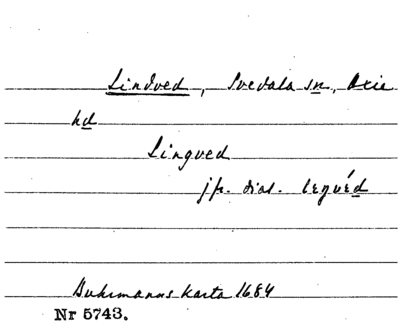 Lindved, Svedala sn, Oxie
hd
Lingved
jfr. dial. leŋvéd
Buhrmanns karta 1684
Nr 5743.